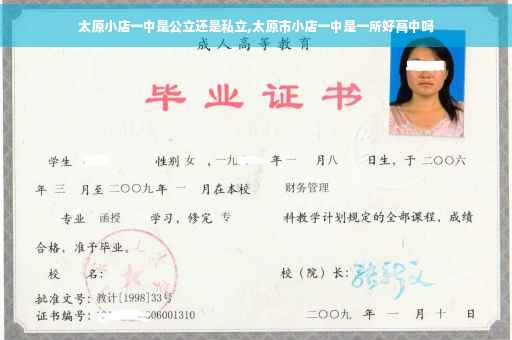 太原小店一中是公立还是私立,太原市小店一中是一所好高中吗
成人高等教育
毕业证书
学生 性别 女 ，一九 年 一 月八 日生，于 二〇〇六
年 三 月至 二〇〇九 年 一 月在本校 财务管理
专业 函授 学习，修完 专 科教学计划规定的全部课程，成绩
合格，准予毕业。
校 名： 校（院）长：
批准文号：教计[1998]33号
证书编号： 06001310 二〇〇九 年 一 月 十 日